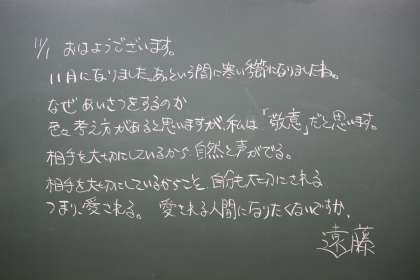 11/1 おはようございます。
11月になりました。あっという間に寒い季節になりましたね。
なぜあいさつをするのか
色々考え方があると思いますが、私は「敬意」だと思います。
相手を大切にしているから自然と声がでる。
相手を大切にしているからこと、自分も大切にされる
つまり、愛される。 愛される人間になりたくないですか、
遠藤